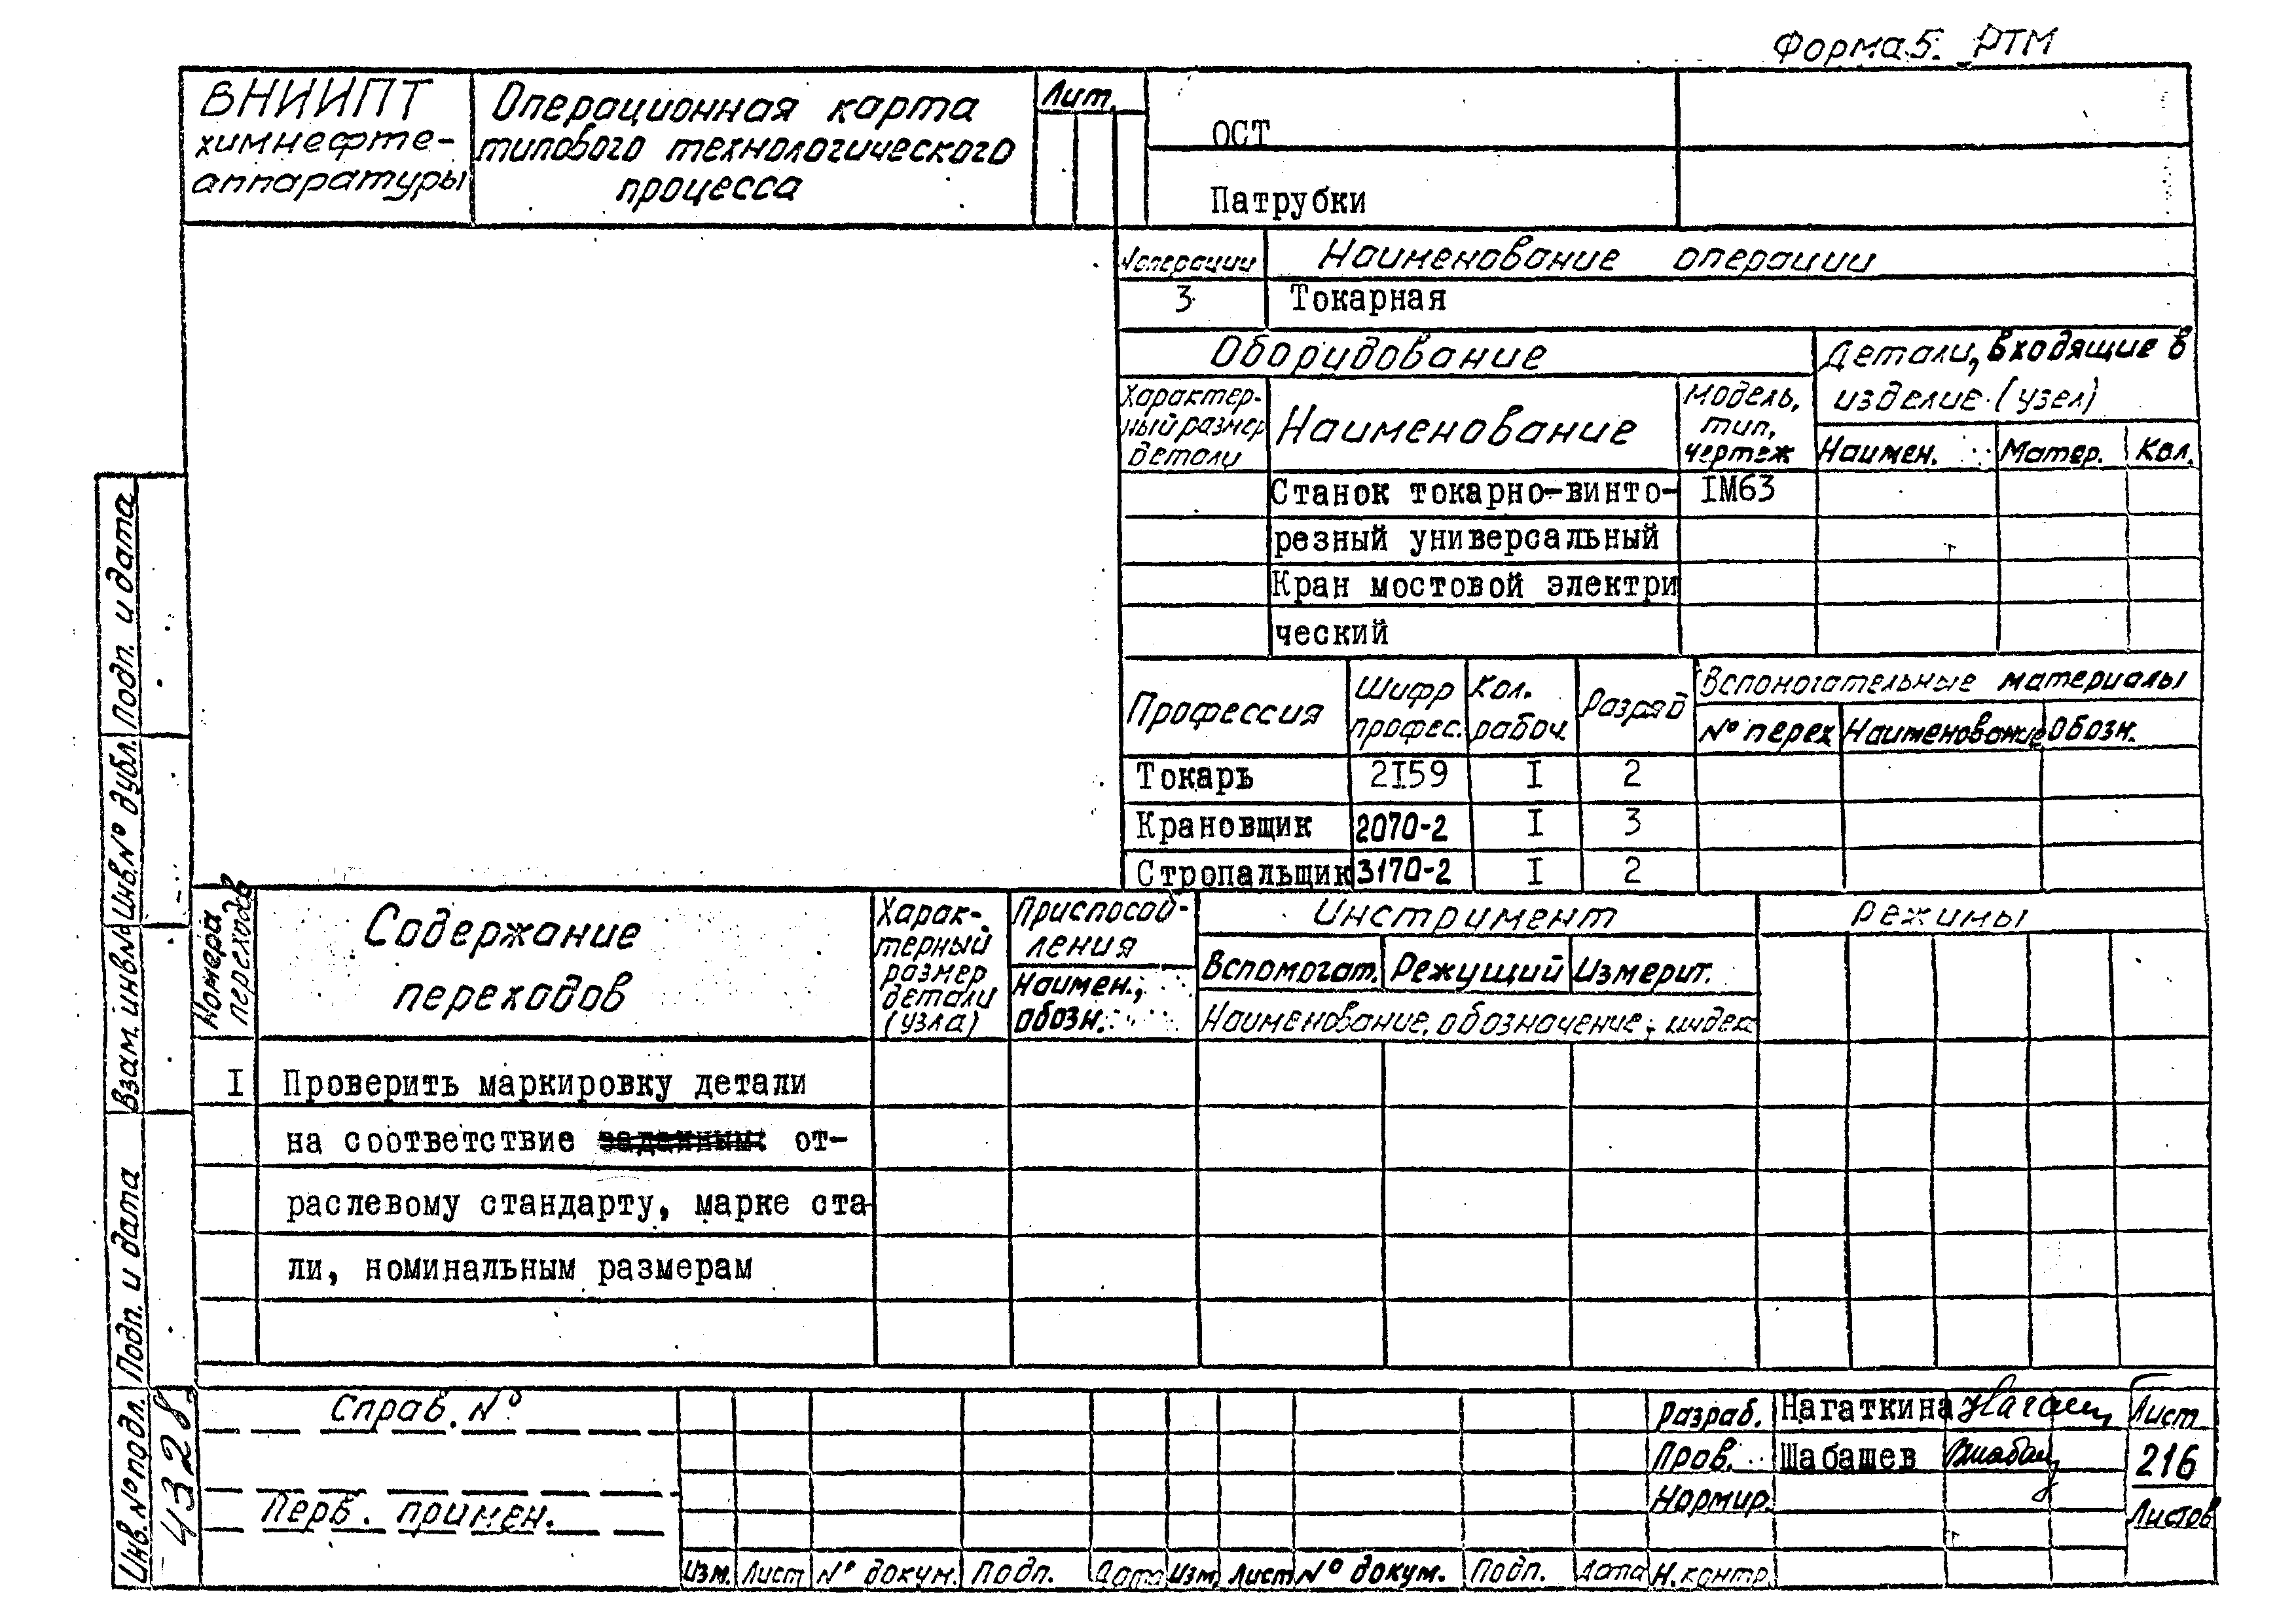 Форма 5. РТМ
ВНИИПТ
химнефте-
аппаратуры
Операционная карта
типового технологического
процесса
Лит.
ОСТ
Патрубки
№операции
Наименование операции
3
Токарная
Оборудование
Детали, входящие в
изделие (узел)
Характер-
ный размер
детали
Наименование
Модель,
тип,
чертеж
Наимен.
Матер.
Кол.
Станок токарно-винто-
IМ63
резный универсальный
Кран мостовой электри
ческий
Профессия
Шифр
профес.
Кол.
рабоч.
Разряд
Вспомогательные материалы
№ перех
Наименование
Обозн.
Токарь 2I59 I 2
Крановщик 2070-2 I 3
Стропальщик 3170-2 I 2
Номера
переходов
Содержание
переходов
Харак-
терный
размер
детали
(узла)
Приспособ-
ления
Наимен.,
обозн.
Инструмент
Вспомогат.
Режущий
Измерит.
Наименование, обозначение, индекс
Режимы
I Проверить маркировку детали
на соответствие заданным от-
раслевому стандарту, марке ста-
ли, номинальным размерам
Подп. и дата
Инв.№ дубл.
Взам. инв№
Подп. и дата
Инв.№ подл.
4328
Справ. №
Перв. примен.
Изм. Лист № докум. Подп. Дата Изм. Лист № докум. Подп. Дата
Разраб. Нагаткина
Пров. Шабашев
Нормир.
Н. контр.
Лист
216
Листов